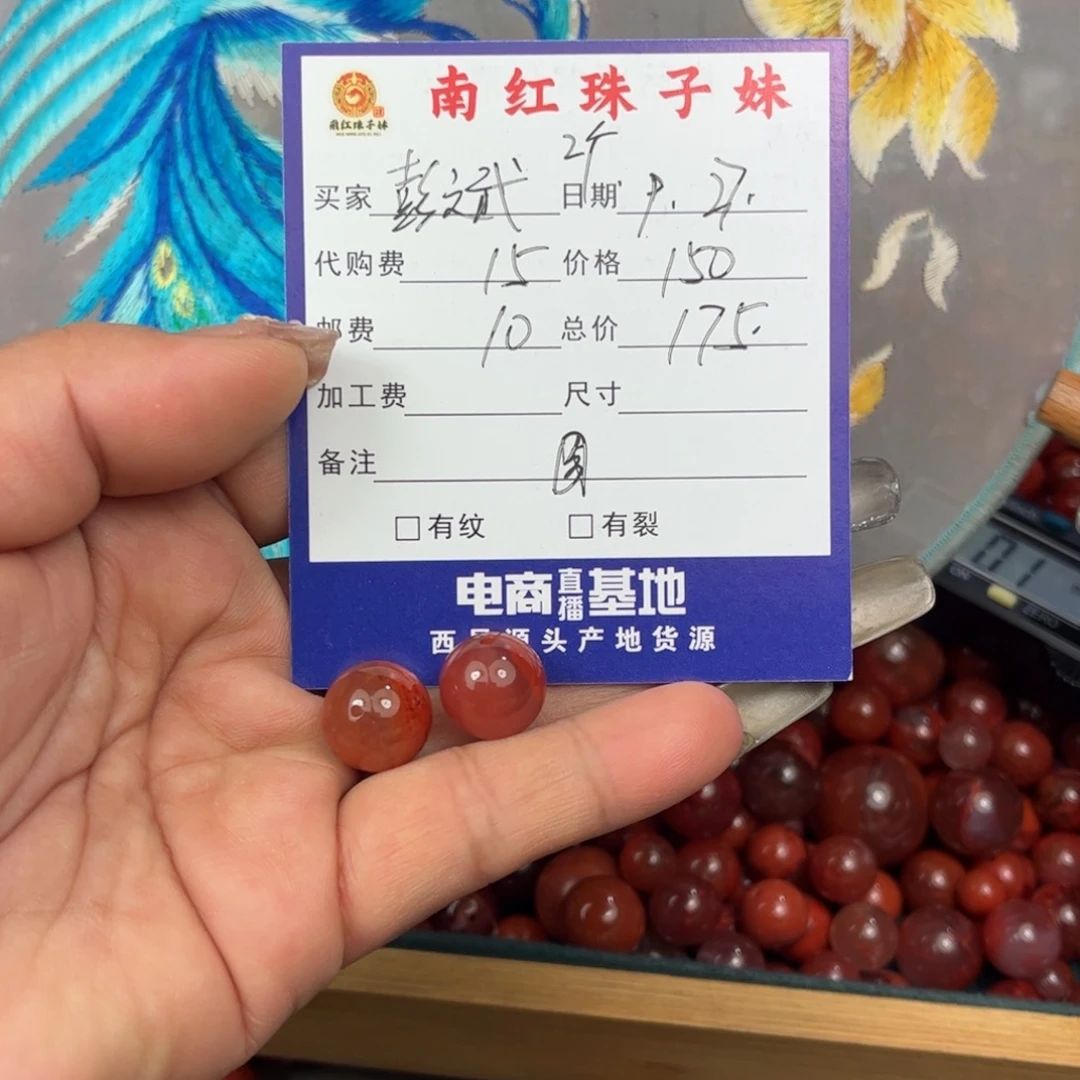 南红珠子妹
南红珠子妹
24
买家 彭文武 日期 9.27.
代购费 15 价格 150
邮费 10 总价 175.
加工费 尺寸
备注
□有纹 □有裂
电商直播基地
西昌源头产地货源